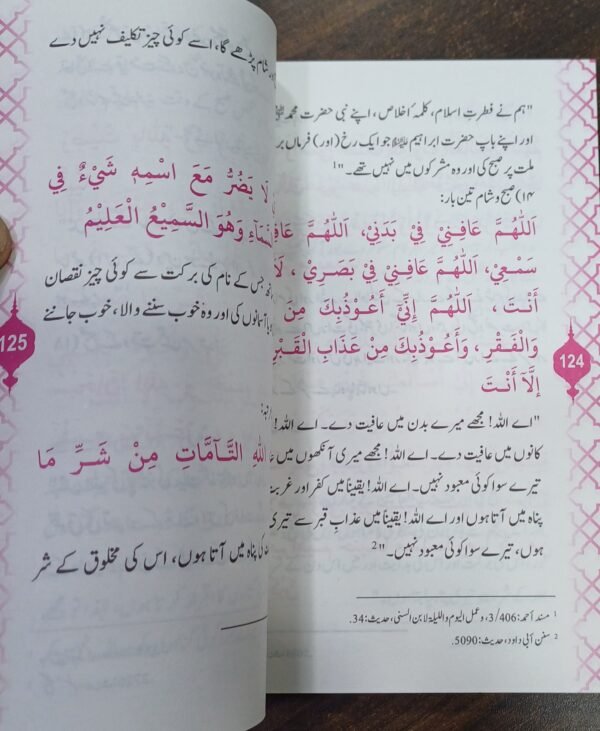 "ہم نے فطرتِ اسلام، کلمۂ اخلاص، اپنے نبی حضرت محمد
اور اپنے باپ حضرت ابراہیم ﷺ جو ایک رخ (اور) فرماں بر
ملت پر صبح کی اور وہ مشرکوں میں نہیں تھے۔" 1
۱۴) صبح و شام تین بار:
اَللّٰهُمَّ عَافِنِيْ فِيْ بَدَنِيْ، اَللّٰهُمَّ عَافِ
سَمْعِيْ، اَللّٰهُمَّ عَافِنِيْ فِيْ بَصَرِيْ، لَا
أَنْتَ، اَللّٰهُمَّ إِنِّيْ أَعُوْذُبِكَ مِنَ
وَالْفَقْرِ، وَأَعُوْذُبِكَ مِنْ عَذَابِ الْقَبْرِ
إِلَّآ أَنْتَ
"اے اللہ! مجھے میرے بدن میں عافیت دے۔ اے اللہ!
کانوں میں عافیت دے۔ اے اللہ! مجھے میری آنکھوں میں
تیرے سوا کوئی معبود نہیں۔ اے اللہ! یقیناً میں کفر اور غر
پناہ میں آتا ہوں اور اے اللہ! یقیناً میں عذابِ قبر سے تیری
ہوں، تیرے سوا کوئی معبود نہیں۔" 2
1 مسند أحمد: 3/406، وعمل اليوم والليلة لابن السني، حديث: 34.
2 سنن أبي داود، حديث: 5090.
124
شام پڑھے گا، اسے کوئی چیز تکلیف نہیں دے
لَا يَضُرُّ مَعَ اسْمِهٖ شَيْءٌ فِي
وَهُوَ السَّمِيْعُ الْعَلِيْمُ
جس کے نام کی برکت سے کوئی چیز نقصان
آسمانوں کی اور وہ خوب سننے والا، خوب جاننے
اللهِ التَّآمَّاتِ مِنْ شَرِّ مَا
کی پناہ میں آتا ہوں، اس کی مخلوق کے شر
125